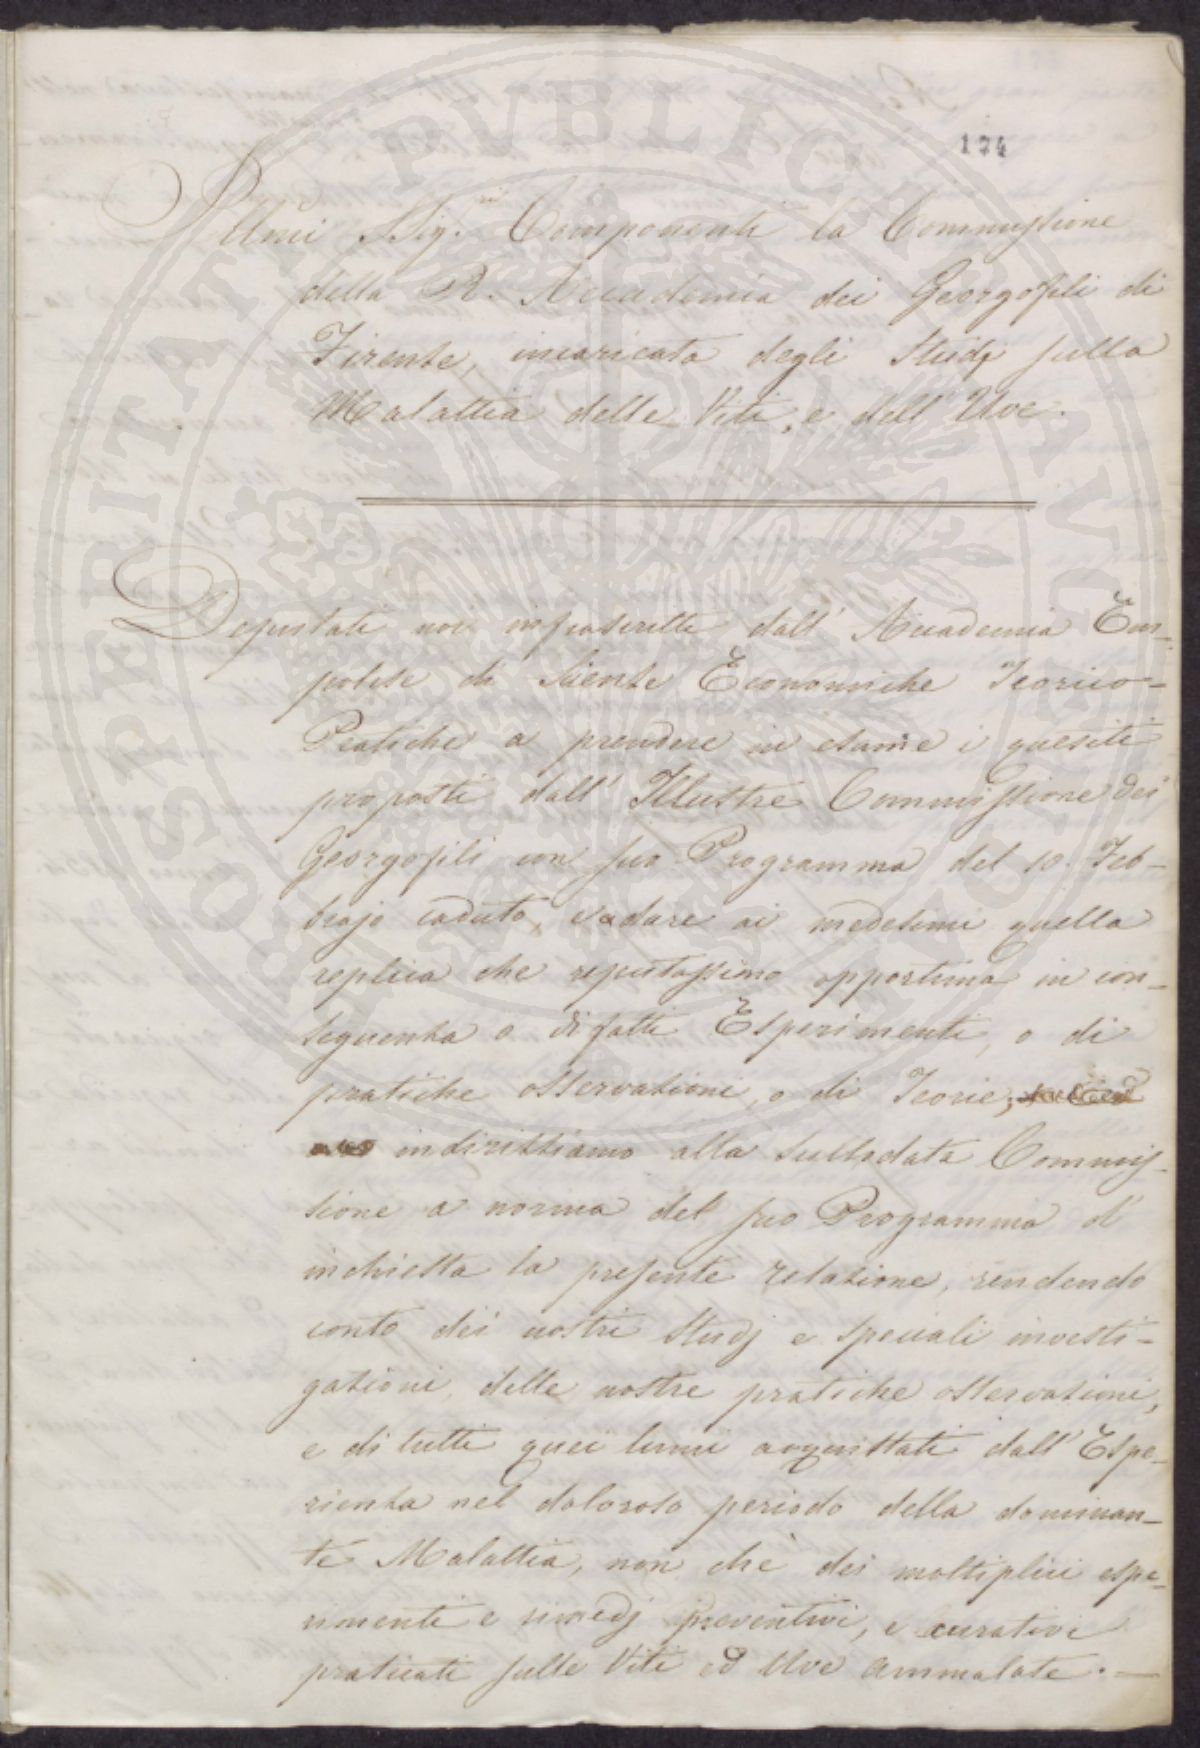 174
Illmi SSig.ri Componenti la Commissione
della R. Accademia dei Georgofili di
Firenze, incaricata degli Studj sulla
Malattia delle Viti, e dell' Uve.
Deputati noi infrascritti dall' Accademia Em-
polese di Scienze Economiche Teorico-
Pratiche a prendere in esame i quesiti
proposti dall' Illustre Commissione dei
Georgofili con suo Programma del 10. Feb-
brajo caduto, e a dare ai medesimi quella
replica che reputassimo opportuna in con-
seguenza o di fatti Esperimenti, o di
pratiche osservazioni, o di Teorie,
indirizziamo alla sullodata Commis-
sione a norma del suo Programma d'
inchiesta la presente relazione, rendendo
conto dei nostri Studj e speciali investi-
gazioni, delle nostre pratiche osservazioni,
e di tutti quei lumi acquistati dall' Espe-
rienza nel doloroso periodo della dominan-
te Malattia, non che dei moltiplici espe-
rimenti e rimedj preventivi, e curativi
praticati sulle Viti ed Uve ammalate. —
PROSPERITATI PUBLICAE AUGENDAE